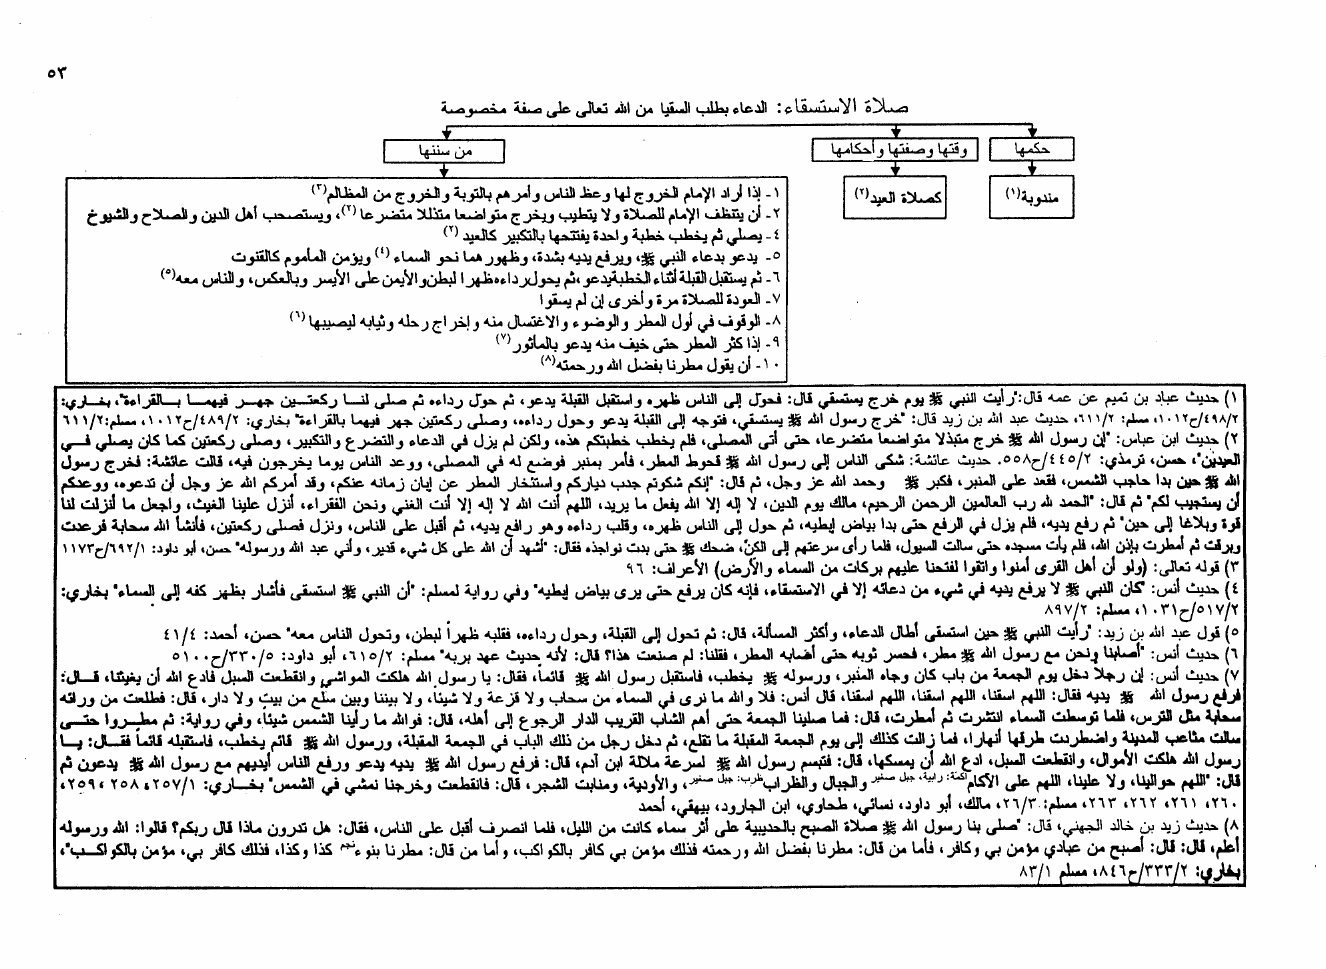 ٥٣
صلاة الاستسقاء: الدعاء بطلب السقيا من الله تعالى على صفة مخصوصة
حكمها
وقتها وصفتها وأحكامها
من سننها
مندوبة(١)
كصلاة العيد(٢)
١- إذا أراد الإمام الخروج لها وعظ الناس وأمرهم بالتوبة والخروج من المظالم(٣)
٢- أن يتنظف الإمام للصلاة ولا يتطيب ويخرج متواضعا متذللا متضرعا(٢)، ويستصحب أهل الدين والصلاح والشيوخ
٤- يصلي ثم يخطب خطبة واحدة يفتتحها بالتكبير كالعيد(٢)
٥- يدعو بدعاء النبي ﷺ، ويرفع يديه بشدة، وظهور هما نحو السماء(٤) ويؤمن المأموم كالقنوت
٦- ثم يستقبل القبلة أثناء الخطبة يدعو، ثم يحول رداءه ظهرا لبطن والأيمن على الأيسر وبالعكس، والناس معه(٥)
٧- العودة للصلاة مرة وأخرى إن لم يسقوا
٨- الوقوف في أول المطر والوضوء والاغتسال منه وإخراج رحله وثيابه ليصيبها(٦)
٩- إذا كثر المطر حتى خيف منه يدعو بالمأثور(٧)
١٠- أن يقول مطرنا بفضل الله ورحمته(٨)
١) حديث عباد بن تميم عن عمه قال:"رأيت النبي ﷺ يوم خرج يستسقي قال: فحول إلى الناس ظهره واستقبل القبلة يدعو، ثم حول رداءه ثم صلى لنا ركعتين جهر فيهما بالقراءة"، بخاري:
٤٩٨/٢/ح١٠١٢، مسلم: ٦١١/٢، حديث عبد الله بن زيد قال: "خرج رسول الله ﷺ يستسقي، فتوجه إلى القبلة يدعو وحول رداءه، وصلى ركعتين جهر فيهما بالقراءة" بخاري: ٤٨٩/٢/ح١٠١٢، مسلم:٦١١/٢
٢) حديث ابن عباس: "إن رسول الله ﷺ خرج متبذلا متواضعا متضرعا، حتى أتى المصلى، فلم يخطب خطبتكم هذه، ولكن لم يزل في الدعاء والتضرع والتكبير، وصلى ركعتين كما كان يصلي في
العيدين"، حسن، ترمذي: ٤٤٥/٢/ح٥٥٨. حديث عائشة: شكى الناس إلى رسول الله ﷺ قحوط المطر، فأمر بمنبر فوضع له في المصلى، ووعد الناس يوما يخرجون فيه، قالت عائشة: فخرج رسول
الله ﷺ حين بدا حاجب الشمس، فقعد على المنبر، فكبر ﷺ وحمد الله عز وجل، ثم قال: "إنكم شكوتم جدب دياركم واستئخار المطر عن إبان زمانه عنكم، وقد أمركم الله عز وجل أن تدعوه، ووعدكم
أن يستجيب لكم" ثم قال: "الحمد لله رب العالمين الرحمن الرحيم، مالك يوم الدين، لا إله إلا الله يفعل ما يريد، اللهم أنت الله لا إله إلا أنت الغني ونحن الفقراء، أنزل علينا الغيث، واجعل ما أنزلت لنا
قوة وبلاغا إلى حين" ثم رفع يديه، فلم يزل في الرفع حتى بدا بياض إبطيه، ثم حول إلى الناس ظهره، وقلب رداءه وهو رافع يديه، ثم أقبل على الناس، ونزل فصلى ركعتين، فأنشأ الله سحابة فرعدت
وبرقت ثم أمطرت بإذن الله، فلم يأت مسجده حتى سالت السيول، فلما رأى سرعتهم إلى الكن، ضحك ﷺ حتى بدت نواجذه فقال: "أشهد أن الله على كل شيء قدير، وأني عبد الله ورسوله" حسن، أبو داود: ٦٩٢/١/ح١١٧٣
٣) قوله تعالى: (ولو أن أهل القرى أمنوا واتقوا لفتحنا عليهم بركات من السماء والأرض) الأعراف: ٩٦
٤) حديث أنس: "كان النبي ﷺ لا يرفع يديه في شيء من دعائه إلا في الاستسقاء، فإنه كان يرفع حتى يرى بياض إبطيه" وفي رواية لمسلم: "أن النبي ﷺ استسقى فأشار بظهر كفه إلى السماء" بخاري:
٥١٧/٢/ح١٠٣١، مسلم: ٨٩٧/٢
٥) قول عبد الله بن زيد: "رأيت النبي ﷺ حين استسقى أطال الدعاء، وأكثر المسألة، قال: ثم تحول إلى القبلة، وحول رداءه، فقلبه ظهراً لبطن، وتحول الناس معه" حسن، أحمد: ٤١/٤
٦) حديث أنس: "أصابنا ونحن مع رسول الله ﷺ مطر، فحسر ثوبه حتى أصابه المطر، فقلنا: لم صنعت هذا؟ قال: لأنه حديث عهد بربه" مسلم: ٦١٥/٢، أبو داود: ٣٣٠/٥/ح٥١٠٠
٧) حديث أنس: إن رجلاً دخل يوم الجمعة من باب كان وجاه المنبر، ورسوله ﷺ يخطب، فاستقبل رسول الله ﷺ قائماً، فقال: يا رسول الله هلكت المواشي وانقطعت السبل فادع الله أن يغيثنا، قال:
فرفع رسول الله ﷺ يديه فقال: اللهم اسقنا، اللهم اسقنا، اللهم اسقنا، قال أنس: فلا والله ما نرى في السماء من سحاب ولا قزعة ولا شيئاً، ولا بيننا وبين سلع من بيت ولا دار، قال: فطلعت من ورائه
سحابة مثل الترس، فلما توسطت السماء انتشرت ثم أمطرت، قال: فما صلينا الجمعة حتى أهم الشاب القريب الدار الرجوع إلى أهله، قال: فوالله ما رأينا الشمس شيئاً، وفي رواية: ثم مطروا حتى
سالت مثاعب المدينة واضطردت طرقها أنهارا، فما زالت كذلك إلى يوم الجمعة المقبلة ما تقلع، ثم دخل رجل من ذلك الباب في الجمعة المقبلة، ورسول الله ﷺ قائم يخطب، فاستقبله قائماً فقال: يا
رسول الله هلكت الأموال، وانقطعت السبل، ادع الله أن يمسكها، قال: فتبسم رسول الله ﷺ لسرعة ملالة ابن آدم، قال: فرفع رسول الله ﷺ يديه يدعو ورفع الناس أيديهم مع رسول الله ﷺ يدعون ثم
قال: "اللهم حوالينا، ولا علينا، اللهم على الآكام أكمة: رابية، جبل صغير والجبال والظراب ظرب: جبل صغير، والأودية، ومنابت الشجر، قال: فانقطعت وخرجنا نمشي في الشمس" بخاري: ٢٥٧/١، ٢٥٨، ٢٥٩،
٢٦٠، ٢٦١، ٢٦٢، ٢٦٣، مسلم: ٢٦/٣، مالك، أبو داود، نسائي، طحاوي، ابن الجارود، بيهقي، أحمد
٨) حديث زيد بن خالد الجهني، قال: "صلى بنا رسول الله ﷺ صلاة الصبح بالحديبية على أثر سماء كانت من الليل، فلما انصرف أقبل على الناس، فقال: هل تدرون ماذا قال ربكم؟ قالوا: الله ورسوله
أعلم، قال: قال: أصبح من عبادي مؤمن بي وكافر، فأما من قال: مطرنا بفضل الله ورحمته فذلك مؤمن بي كافر بالكواكب، وأما من قال: مطرنا بنوء نجم كذا وكذا، فذلك كافر بي، مؤمن بالكواكب"،
بخاري: ٣٣٣/٢/ح٨٤٦، مسلم ٨٣/١